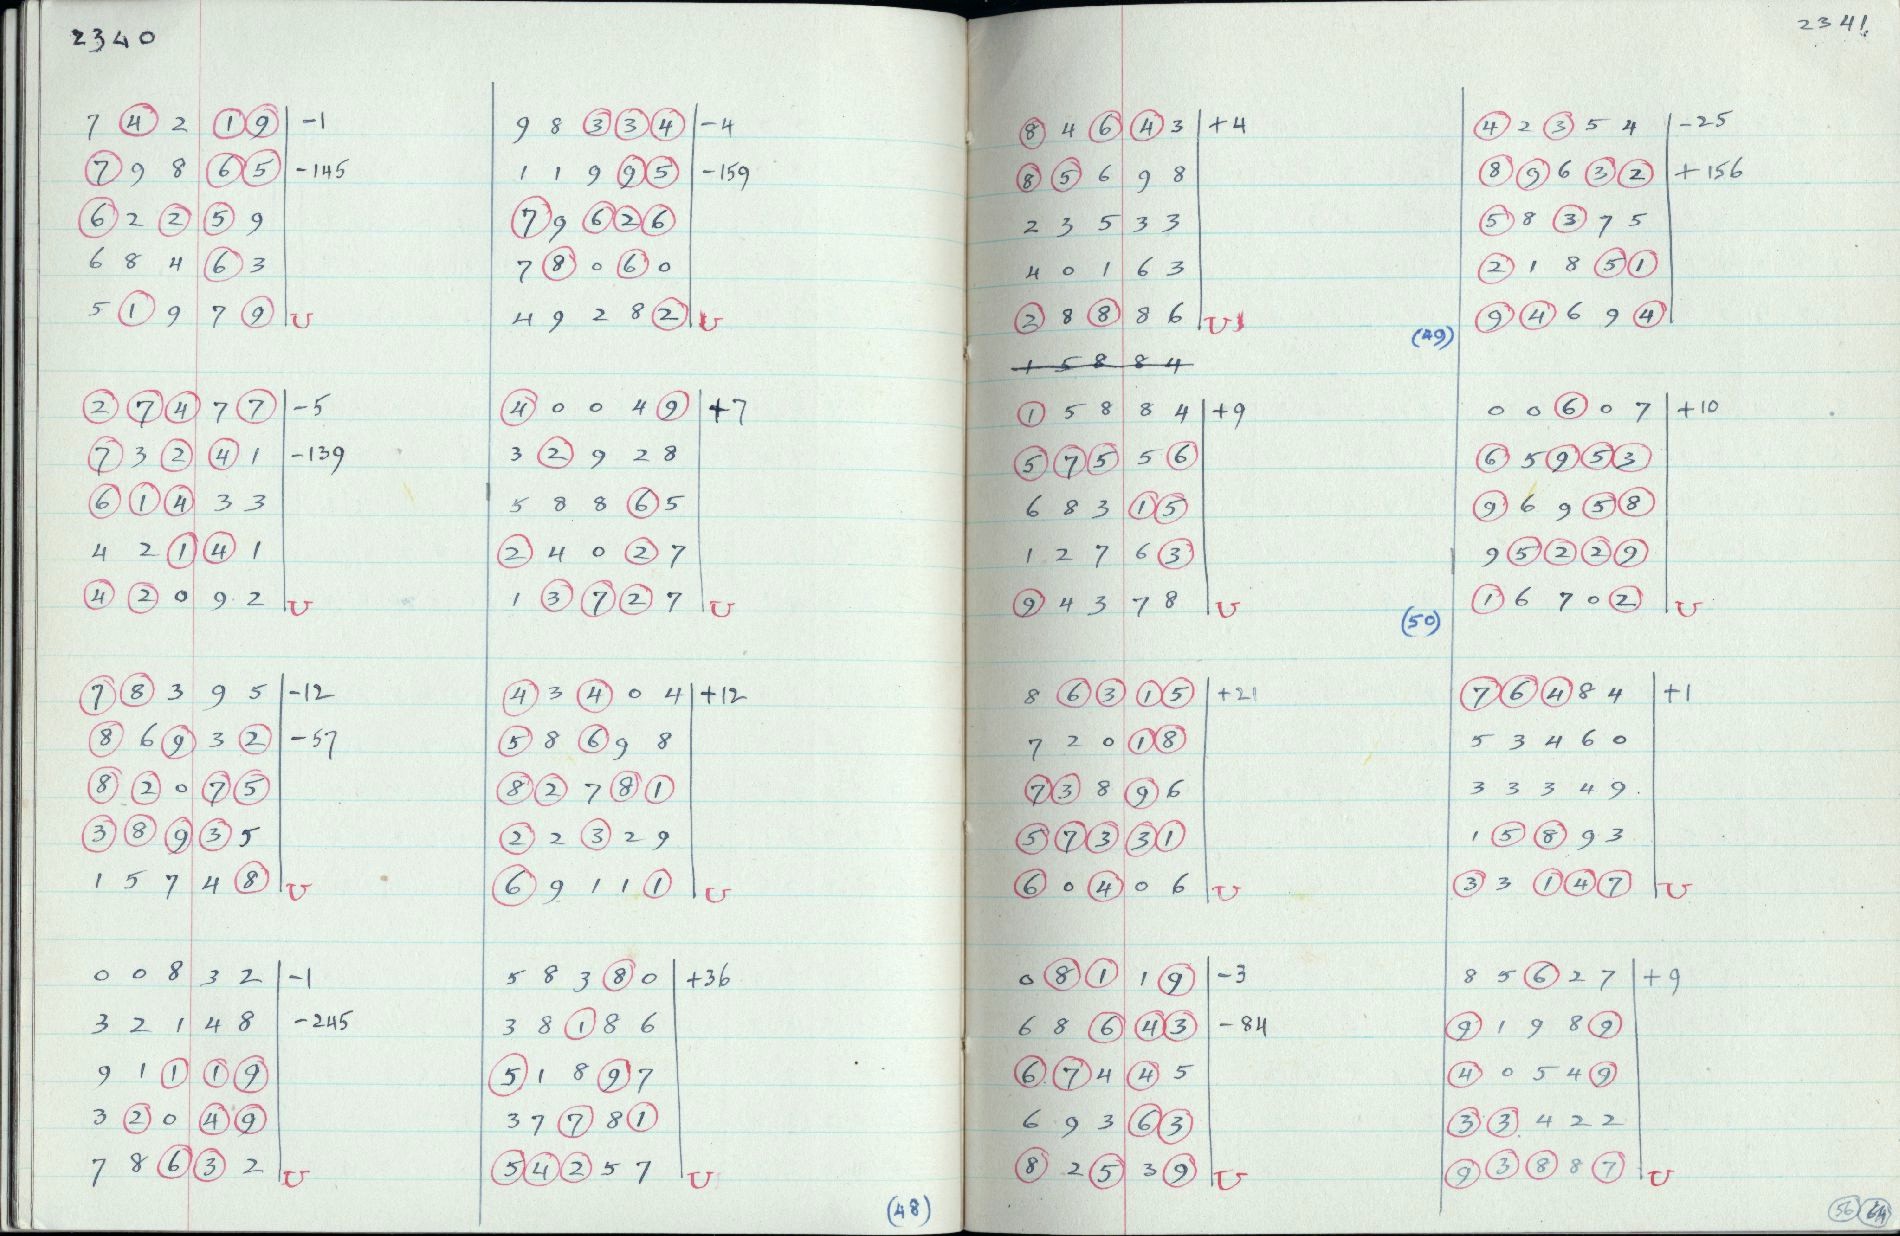 2340
7 4 2 1 9 -1
7 9 8 6 5 -145
6 2 2 5 9
6 8 4 6 3
5 1 9 7 9 U
2 7 4 7 7 -5
7 3 2 4 1 -139
6 1 4 3 3
4 2 1 4 1
4 2 0 9 2 U
7 8 3 9 5 -12
8 6 9 3 2 -57
8 2 0 7 5
3 8 9 3 5
1 5 7 4 8 U
0 0 8 3 2 -1
3 2 1 4 8 -245
9 1 1 1 9
3 2 0 4 9
7 8 6 3 2 U
9 8 3 3 4 -4
1 1 9 9 5 -159
7 9 6 2 6
7 8 0 6 0
4 9 2 8 2 U
4 0 0 4 9 +7
3 2 9 2 8
5 8 8 6 5
2 4 0 2 7
1 3 7 2 7 U
4 3 4 0 4 +12
5 8 6 9 8
8 2 7 8 1
2 2 3 2 9
6 9 1 1 1 U
5 8 3 8 0 +36
3 8 1 8 6
5 1 8 9 7
3 7 7 8 1
5 4 2 5 7 U
(48)
2341
8 4 6 4 3 +4
8 5 6 9 8
2 3 5 3 3
4 0 1 6 3
2 8 8 8 6 U
1 5 8 8 4
1 5 8 8 4 +9
5 7 5 5 6
6 8 3 1 5
1 2 7 6 3
9 4 3 7 8 U
8 6 3 1 5 +21
7 2 0 1 8
7 3 8 9 6
5 7 3 3 1
6 0 4 0 6 U
0 8 1 1 9 -3
6 8 6 4 3 -84
6 7 4 4 5
6 9 3 6 3
8 2 5 3 9 U
4 2 3 5 4 -25
8 9 6 3 2 +156
5 8 3 7 5
2 1 8 5 1
9 4 6 9 4
(49)
0 0 6 0 7 +10
6 5 9 5 3
9 6 9 5 8
9 5 2 2 9
1 6 7 0 2 U
(50)
7 6 4 8 4 +1
5 3 4 6 0
3 3 3 4 9
1 5 8 9 3
3 3 1 4 7 U
8 5 6 2 7 +9
9 1 9 8 9
4 0 5 4 9
3 3 4 2 2
9 3 8 8 7 U
56 64